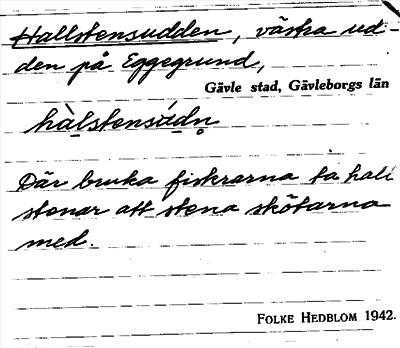 Hallstensudden, västra ud-
den på Eggegrund,
Gävle stad, Gävleborgs län
hàlstensúdn̥
Där bruka fiskrarna ta hall
stenar att stena skötarna
med.
FOLKE HEDBLOM 1942.